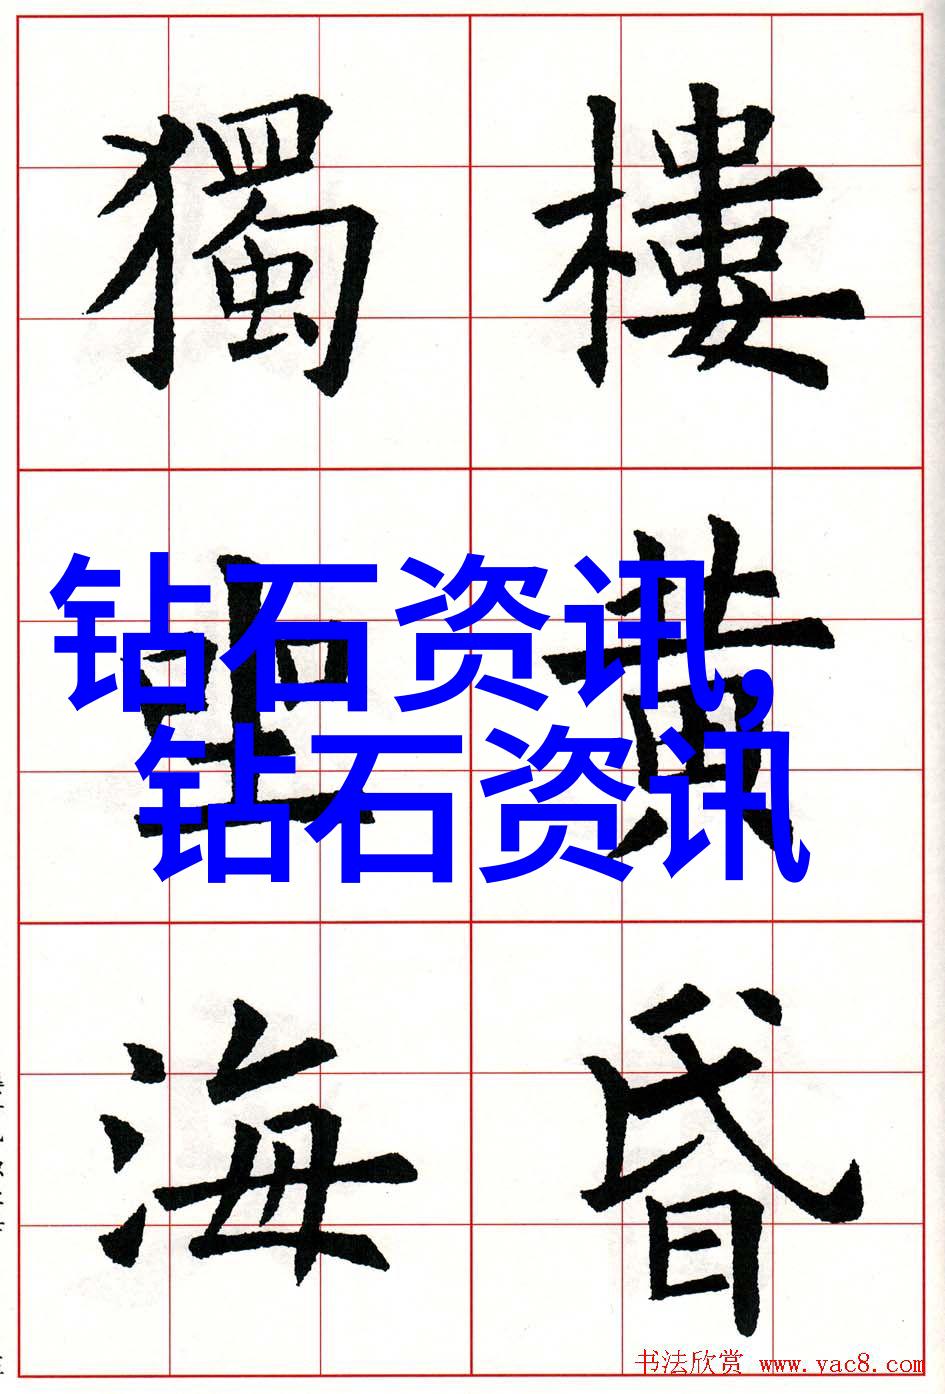 樓黄昏
獨坐海
钻石资讯,
钻石资讯
书法欣赏 www.yac8.com